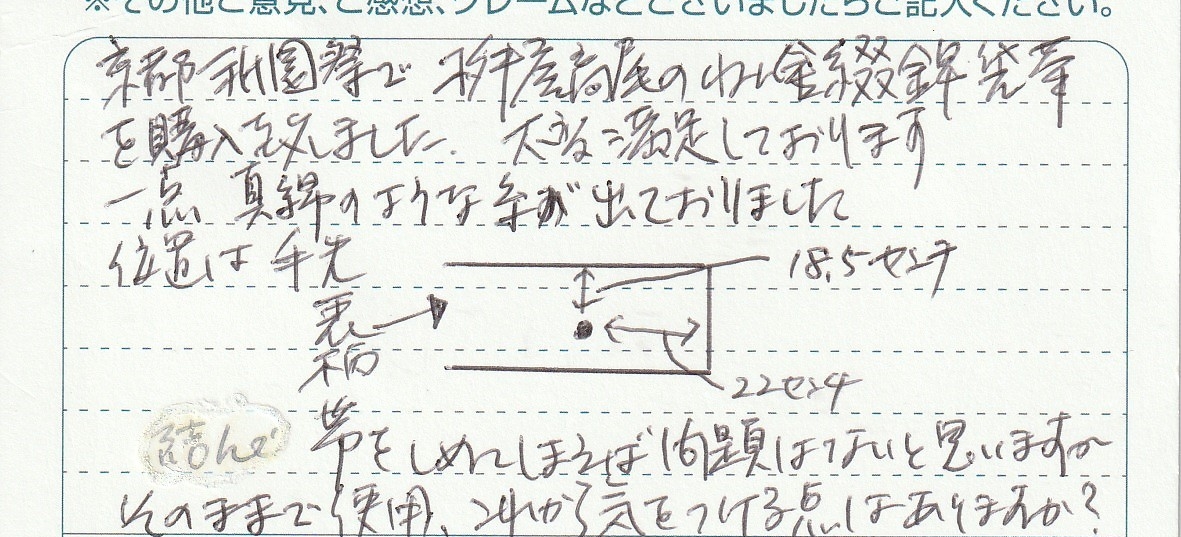 ※その他ご意見、ご感想、クレームなどございましたらご記入ください。
京都祇園祭で 桝屋高尾のねん金綴錦袋帯
を購入を〆しました。大変満足しております
一点 真綿のような糸が出ておりました
位置は手先
18.5センチ
表
柄
22センチ
結んで
帯をしめてしまえば問題はないと思いますが
そのままで使用、これから気をつける点はありますか?